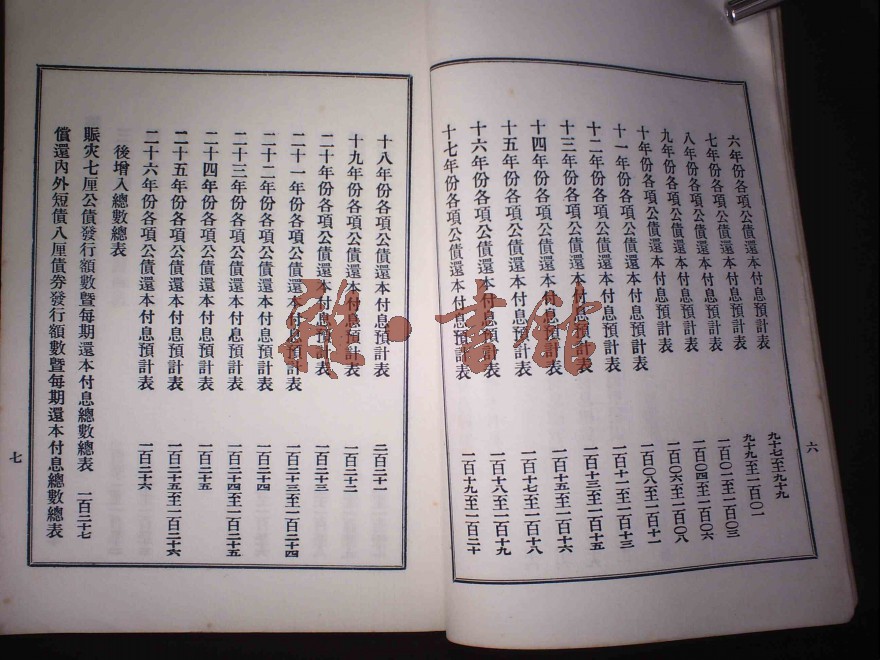 六年份各項公債還本付息預計表 九十七至九十九
七年份各項公債還本付息預計表 九十九至一百〇一
八年份各項公債還本付息預計表 一百〇二至一百〇三
九年份各項公債還本付息預計表 一百〇四至一百〇六
十年份各項公債還本付息預計表 一百〇六至一百〇八
十一年份各項公債還本付息預計表 一百〇八至一百十一
十二年份各項公債還本付息預計表 一百十一至一百十三
十三年份各項公債還本付息預計表 一百十三至一百十五
十四年份各項公債還本付息預計表 一百十五至一百十六
十五年份各項公債還本付息預計表 一百十七至一百十八
十六年份各項公債還本付息預計表 一百十八至一百十九
十七年份各項公債還本付息預計表 一百十九至一百二十
六
十八年份各項公債還本付息預計表 一百二十一
十九年份各項公債還本付息預計表 一百二十二
二十年份各項公債還本付息預計表 一百二十三
二十一年份各項公債還本付息預計表 一百二十三至一百二十四
二十二年份各項公債還本付息預計表 一百二十四
二十三年份各項公債還本付息預計表 一百二十四至一百二十五
二十四年份各項公債還本付息預計表 一百二十五
二十五年份各項公債還本付息預計表 一百二十五至一百二十六
二十六年份各項公債還本付息預計表 一百二十六
後增入總數總表
賑灾七厘公債發行額數暨每期還本付息總數總表 一百二十七
償還內外短債八厘債券發行額數暨每期還本付息總數總表
七